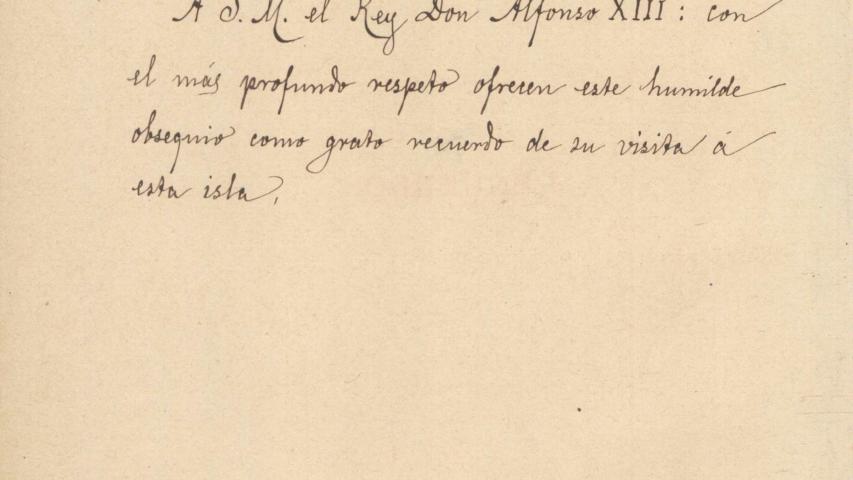 A S. M. el Rey Don Alfonso XIII: con
el más profundo respeto ofrecen este humilde
obsequio como grato recuerdo de su visita á
esta isla,